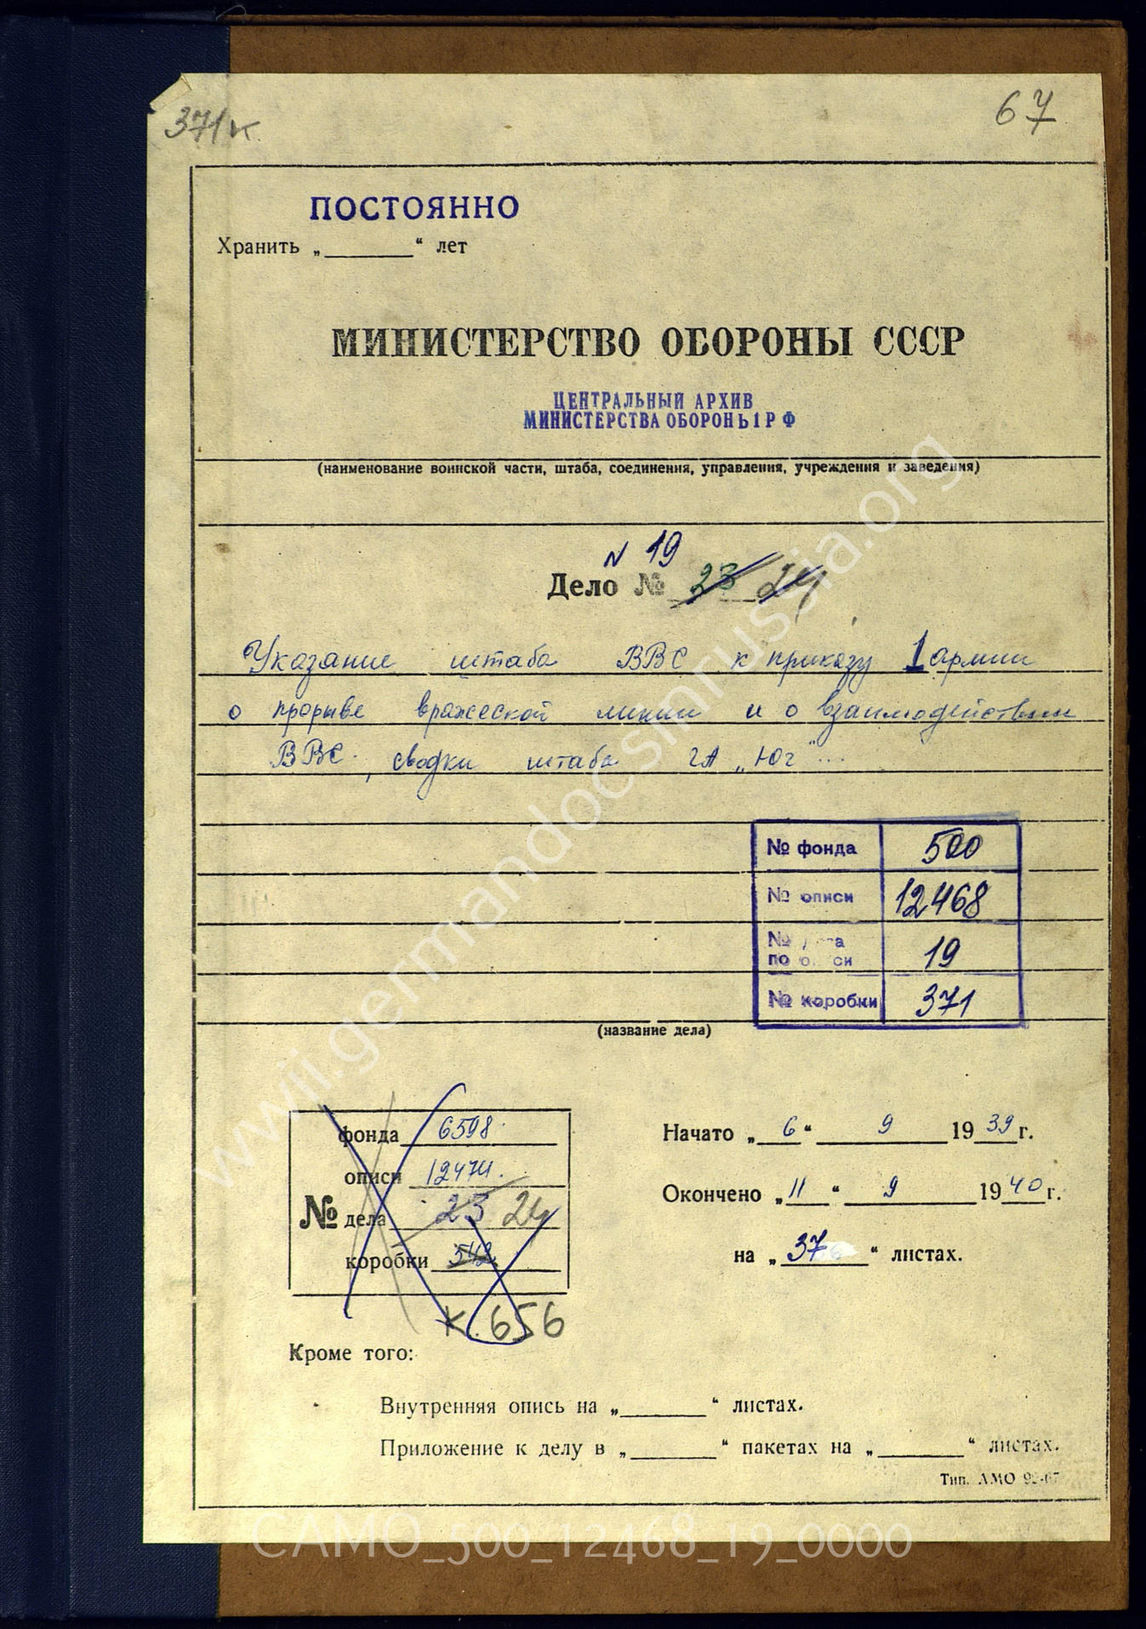 371к
67
ПОСТОЯННО
Хранить „ “ лет
МИНИСТЕРСТВО ОБОРОНЫ СССР
ЦЕНТРАЛЬНЫЙ АРХИВ
МИНИСТЕРСТВА ОБОРОНЫ РФ
(наименование воинской части, штаба, соединения, управления, учреждения и заведения)
N 19
Дело № 23 24
Указание штаба ВВС к приказу 1 армии
о прорыве вражеской линии и о взаимодействии
ВВС, сводки штаба ГА „Юг“...
№ фонда 500
№ описи 12468
№ дела по описи 19
№ коробки 371
(название дела)
фонда 6598
описи 12474
№ дела 23 24
коробки 542
к. 656
Начато „6“ 9 1939 г.
Окончено „11“ 9 1940 г.
на „37“ листах.
Кроме того:
Внутренняя опись на „ “ листах.
Приложение к делу в „ “ пакетах на „ “ листах.
Тип. АМО
wwii.germandocsinrussia.org
CAMO_500_12468_19_0000